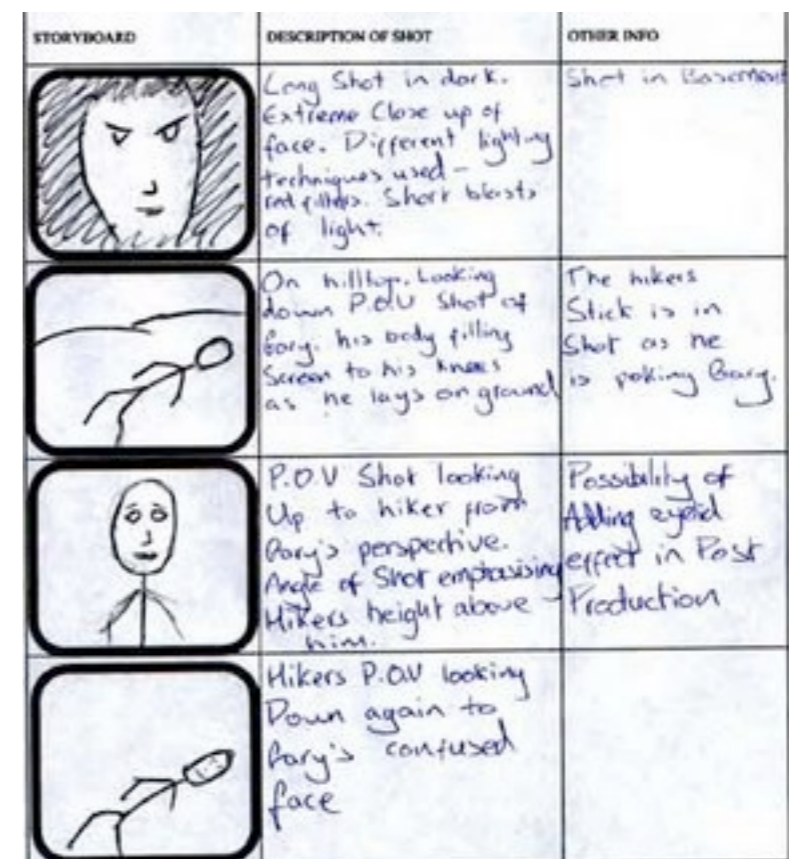 STORYBOARD
DESCRIPTION OF SHOT
OTHER INFO
Long Shot in dark.
Extreme Close up of
face. Different lighting
techniques used –
red filters. Short blasts
of light.
Shot in Basement
On hilltop. Looking
down P.O.V Shot of
Gary. his body filling
Screen to his knees
as he lays on ground
The hikers
Stick is in
Shot as he
is poking Gary.
P.O.V Shot looking
Up to hiker from
Gary's perspective.
Angle of Shot emphasising
Hikers height above
him.
Possibility of
Adding eyelid
effect in Post
Production
Hikers P.O.V looking
Down again to
Gary's confused
face